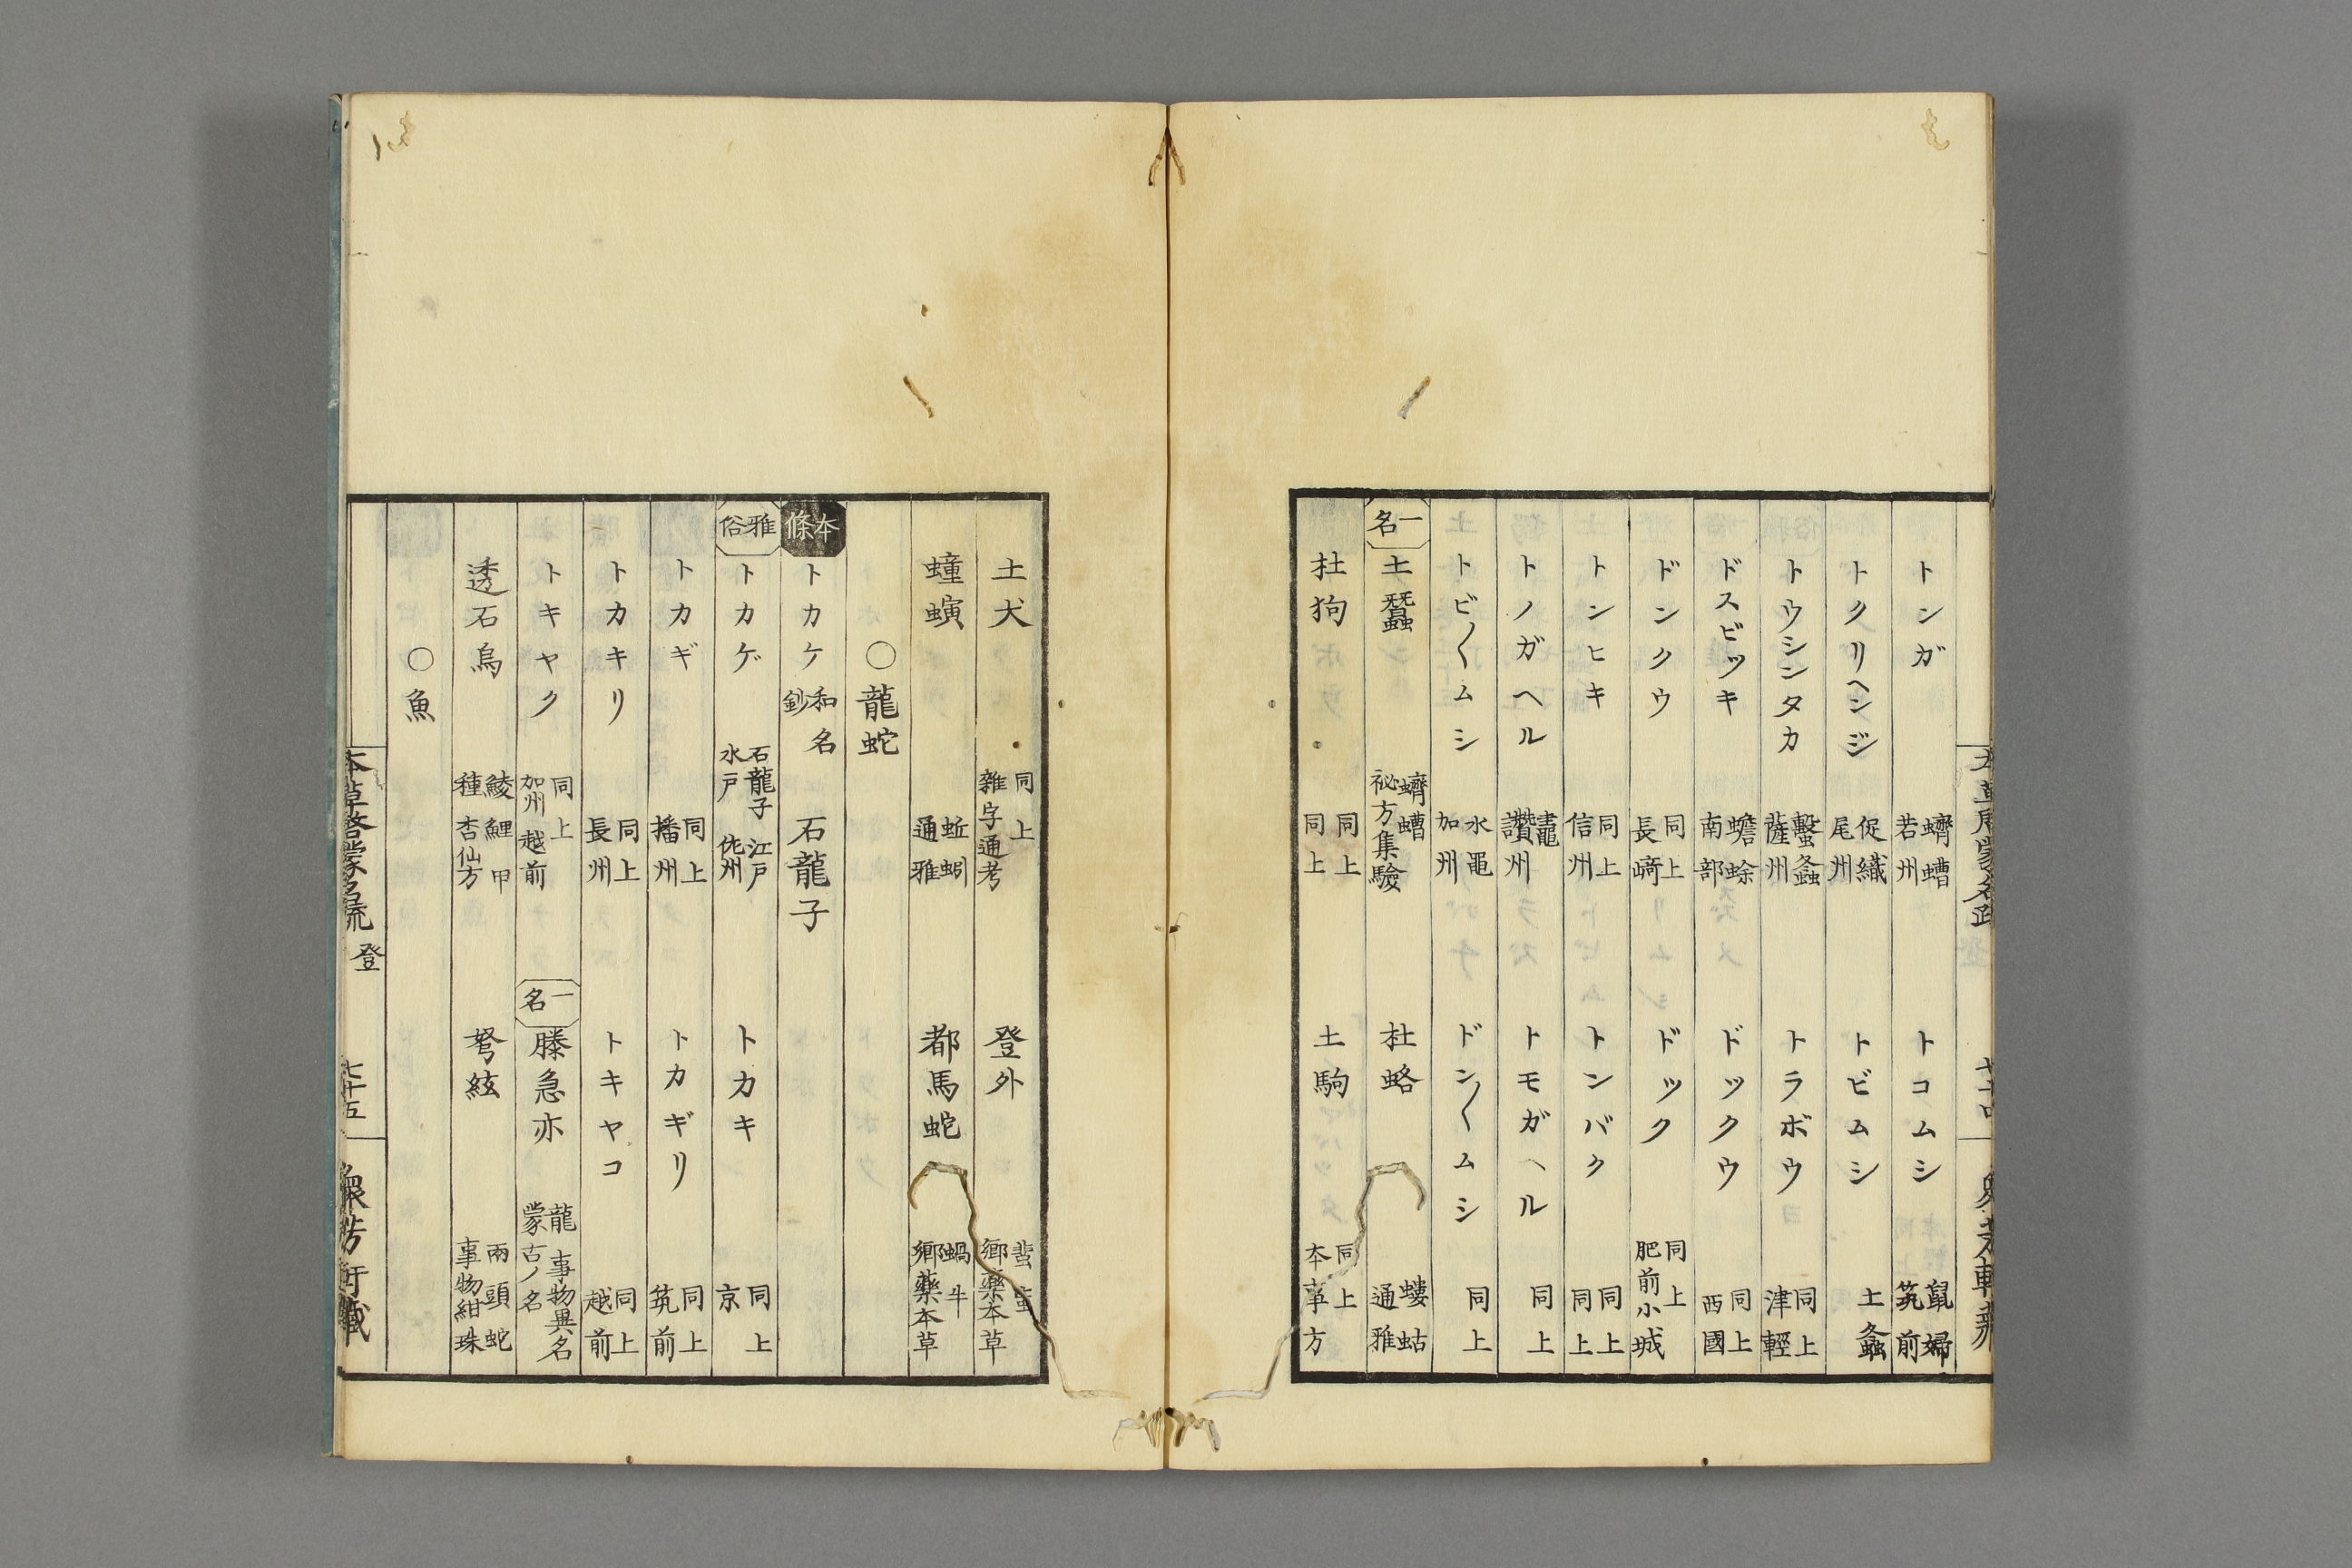 トンガ 蠐螬 若州 トコムシ 鼠婦 筑前
トクリヘンジ 促織 尾州 トビムシ 土螽
トウシンタカ 螇螽 薩州 トラボウ 同上 津輕
ドスビツキ 蟾蜍 南部 ドツクウ 同上 西國
ドンクウ 同上 長﨑 ドツク 同上 肥前小城
トンヒキ 同上 信州 トンバク 同上 同上
トノガヘル 鼃 讃州 トモガヘル 同上
トビ〳〵ムシ 水黽 加州 ドン〳〵ムシ 同上
一名 土蠶 蠐螬 祕方集驗 杜蛒 螻蛄 通雅
杜狗 同上 同上 土駒 同上 本事方
土犬 同上 雜字通考 登外 蜚蝱 鄉藥本草
蝩螾 蚯蚓 通雅 都馬蛇 蝸牛 鄉藥本草
○龍蛇
本條 トカケ 和名鈔 石龍子
雅俗 トカゲ 石龍子 江戸 水戸 佐州 トカキ 同上 京
トカギ 同上 播州 トカギリ 同上 筑前
トカキリ 同上 長州 トキヤコ 同上 越前
トキヤク 同上 加州 越前 一名 滕急亦 龍 事物異名 蒙古ノ名
透石烏 鯪鯉甲 種杏仙方 弩絃 兩頭蛇 事物紺珠
○魚
本草啓蒙名疏 登 七十五 衆芳軒藏